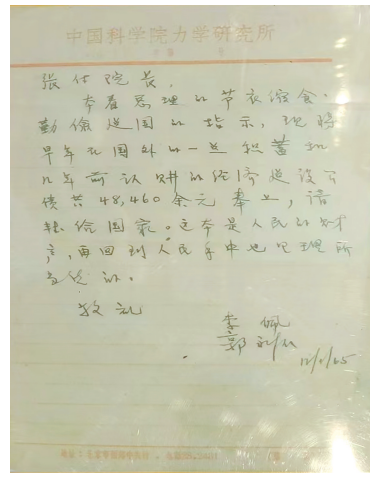 中国科学院力学研究所
张付院长，
本着总理的节衣缩食，
勤俭建国的指示，现将
早年在国外的一点积蓄和
几年前认购的经济建设公
债共48,460余元奉上，请
转给国家。这本是人民的财
产，再回到人民手中也是理所
当然的。
敬礼
李佩
郭永怀